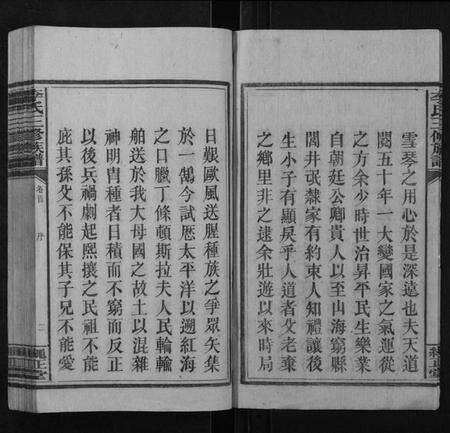 李氏三修族譜
雪琴之用心於是深遠也夫天道
閱五十年一大變國家之氣運從
之方余少時世治昇平民生樂業
自朝廷公卿貴人以至山海窮縣
閭井氓隸家有約束人知禮讓後
生小子有顯戾乎人道者父老羣
之鄉里非之逮余壯遊以來時局
日艱歐風送腥種族之爭眾矢集
於一鵠今試厯太平洋以遡紅海
之口臘丁條頓斯拉夫人民輪輸
舶送於我大母國之故土以混雜
神明冑種者日積而不窮而反正
以後兵禍劇起熙攘之民祖不能
庇其孫父不能保其子兄不能愛
李氏三修族譜
卷首
序
二